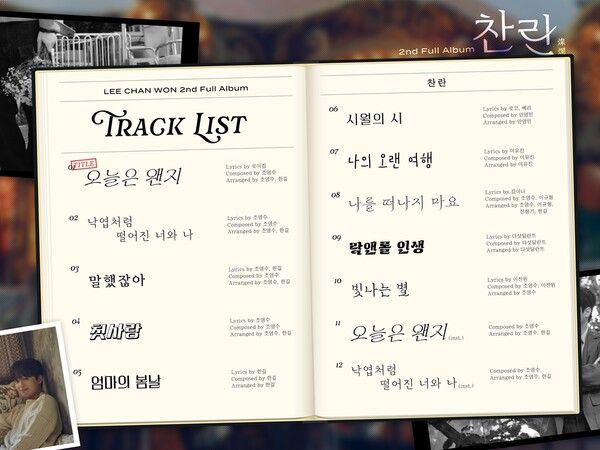 2nd Full Album
찬란
燦爛
LEE CHAN WON 2nd Full Album
TRACK LIST
TITLE
01
오늘은 왠지
Lyrics by 로이킴
Composed by 조영수
Arranged by 조영수, 한길
02
낙엽처럼
떨어진 너와 나
Lyrics by 조영수
Composed by 조영수
Arranged by 조영수, 한길
03
말했잖아
Lyrics by 조영수, 한길
Composed by 조영수, 한길
Arranged by 조영수, 한길
04
첫사랑
Lyrics by 조영수
Composed by 조영수
Arranged by 조영수, 한길
05
엄마의 봄날
Lyrics by 한길
Composed by 한길
Arranged by 조영수, 한길
찬란
06
시월의 시
Lyrics by 로코, 베리
Composed by 민영민
Arranged by 민영민
07
나의 오랜 여행
Lyrics by 이유진
Composed by 이유진
Arranged by 이유진
08
나를 떠나지 마요
Lyrics by 김이나
Composed by 조영수, 이규형
Arranged by 조영수, 이규형,
전창기, 한길
09
락앤롤 인생
Lyrics by 다섯달란트
Composed by 다섯달란트
Arranged by 다섯달란트
10
빛나는 별
Lyrics by 이찬원
Composed by 조영수, 이찬원
Arranged by 조영수
11
오늘은 왠지 (inst.)
Composed by 조영수
Arranged by 조영수, 한길
12
낙엽처럼
떨어진 너와 나 (inst.)
Composed by 조영수
Arranged by 조영수, 한길